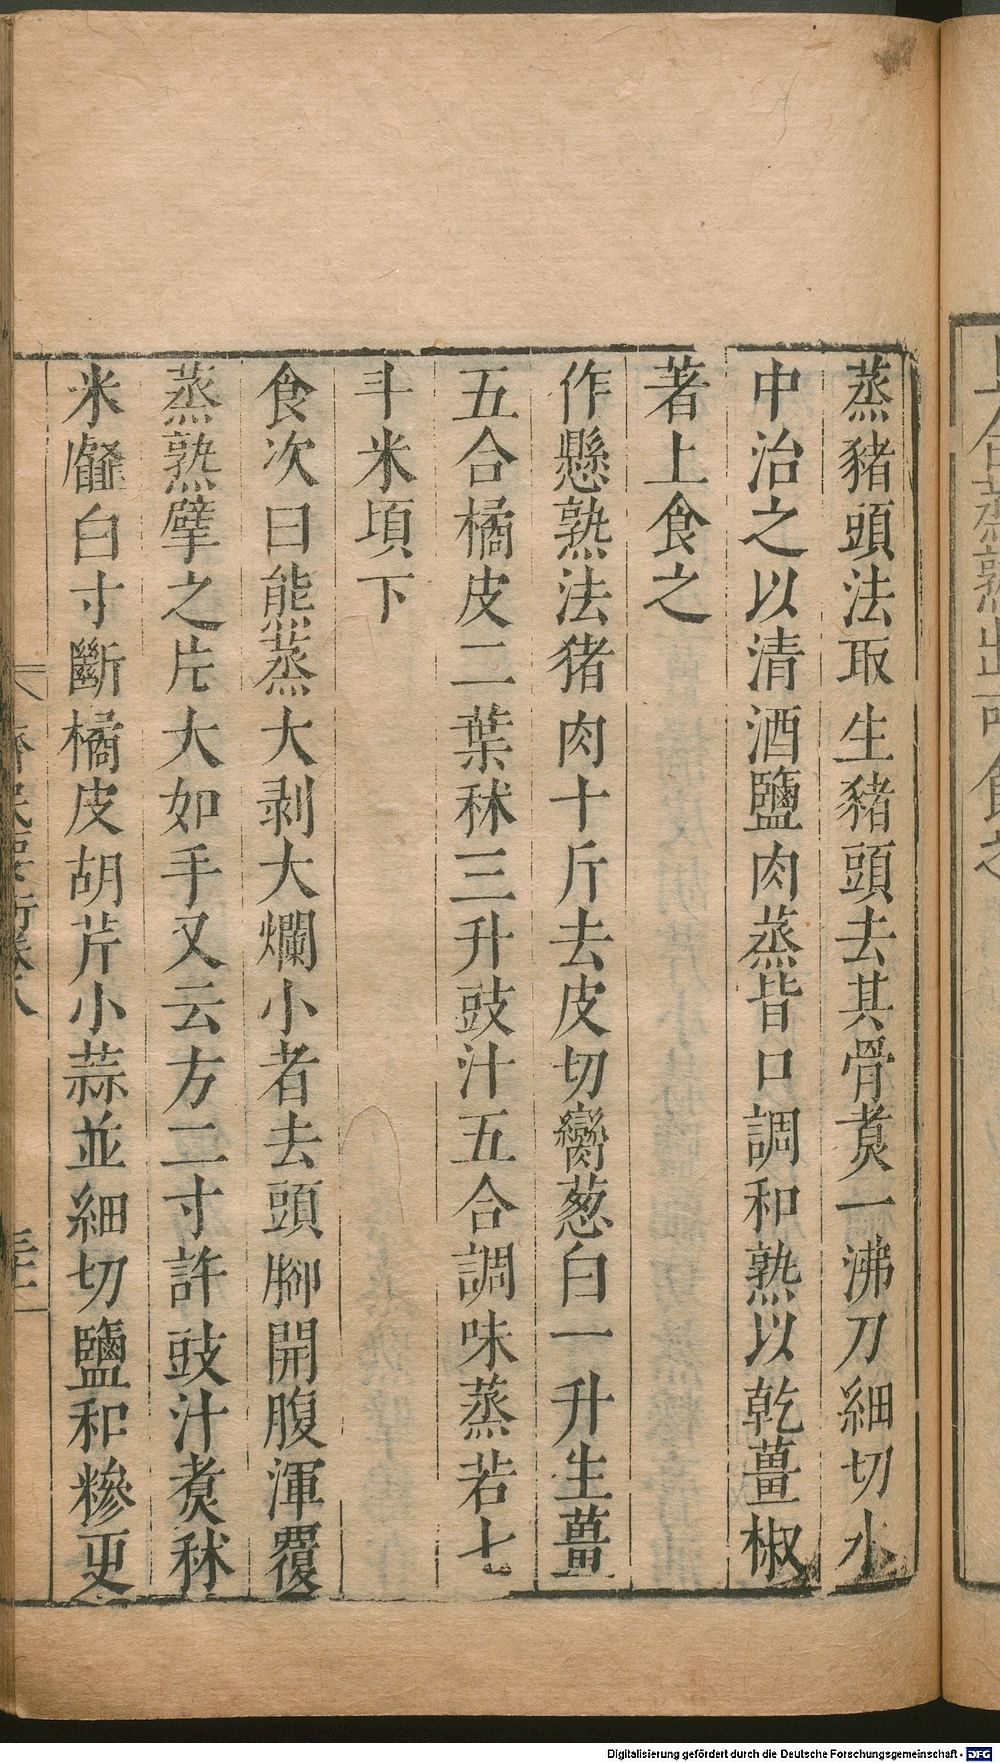 蒸豬頭法取生豬頭去其骨煑一沸刀細切水
中治之以清酒鹽肉蒸皆口調和熟以乾薑椒
著上食之
作懸熟法猪肉十斤去皮切臠葱白一升生薑
五合橘皮二葉秫三升豉汁五合調味蒸若七
斗米頃下
食次曰熊蒸大剥大爛小者去頭腳開腹渾覆
蒸熟擘之片大如手又云方二寸許豉汁煑秫
米白寸斷橘皮胡芹小蒜並細切鹽和糝更
Digitalisierung gefördert durch die Deutsche Forschungsgemeinschaft - DFG